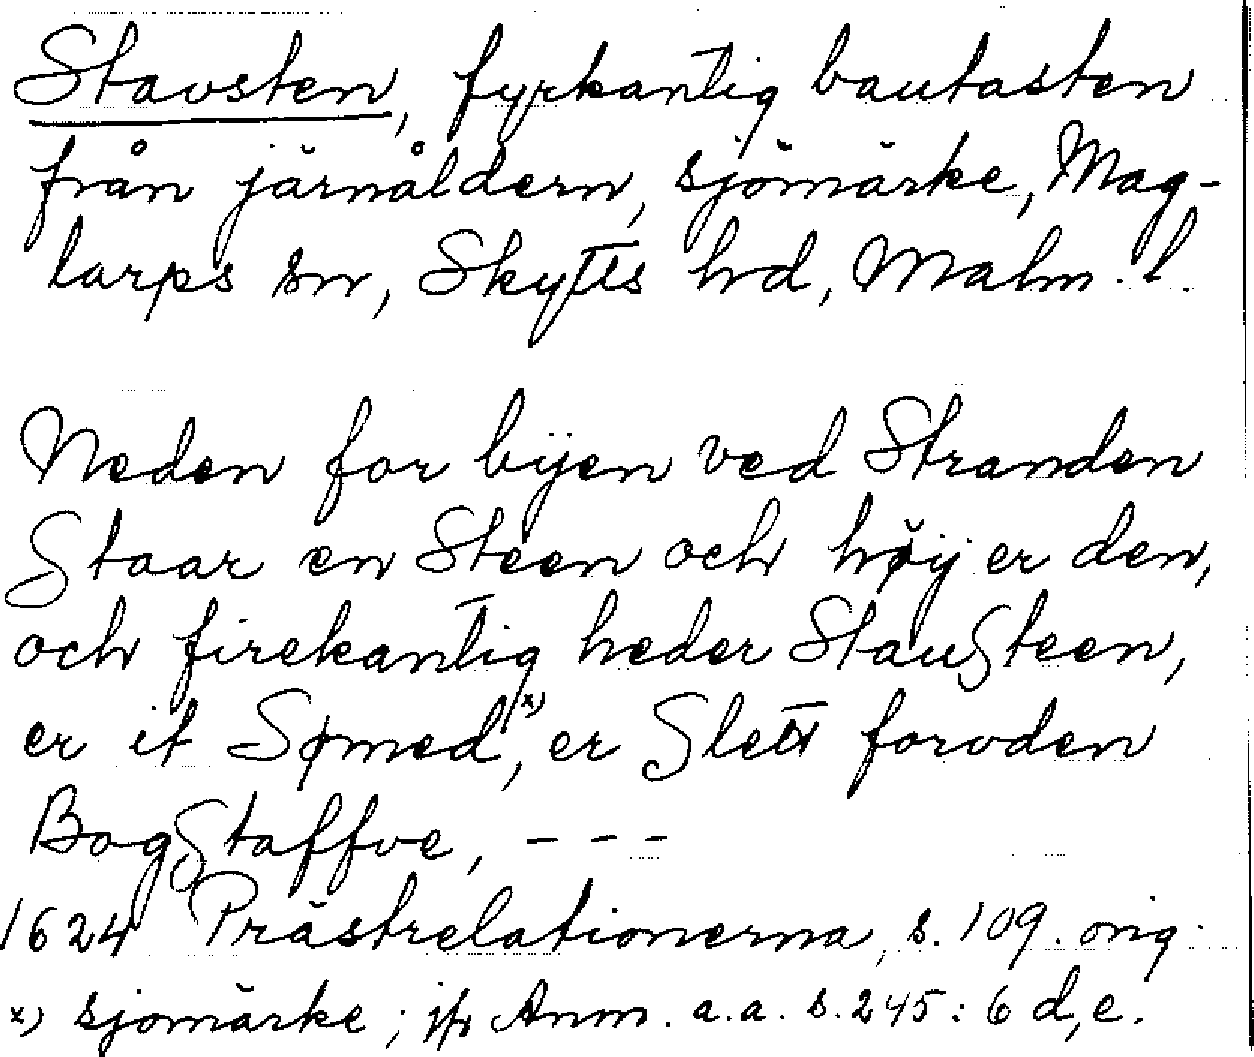 Stavsten, fyrkantig bautasten
från järnåldern, sjömärke, Mag-
larps sn, Skytts hd, Malm. l.
Neden for bÿen ved Stranden
Staar en Steen och høÿ er den,
och firekantig heder StauSteen,
er it Sømed,x) er Slett foruden
BogStaffve, - - -
1624 Prästrelationerna, s. 109. orig.
x) sjömärke ; jfr Anm. a.a. s. 245 : 6 d,e.